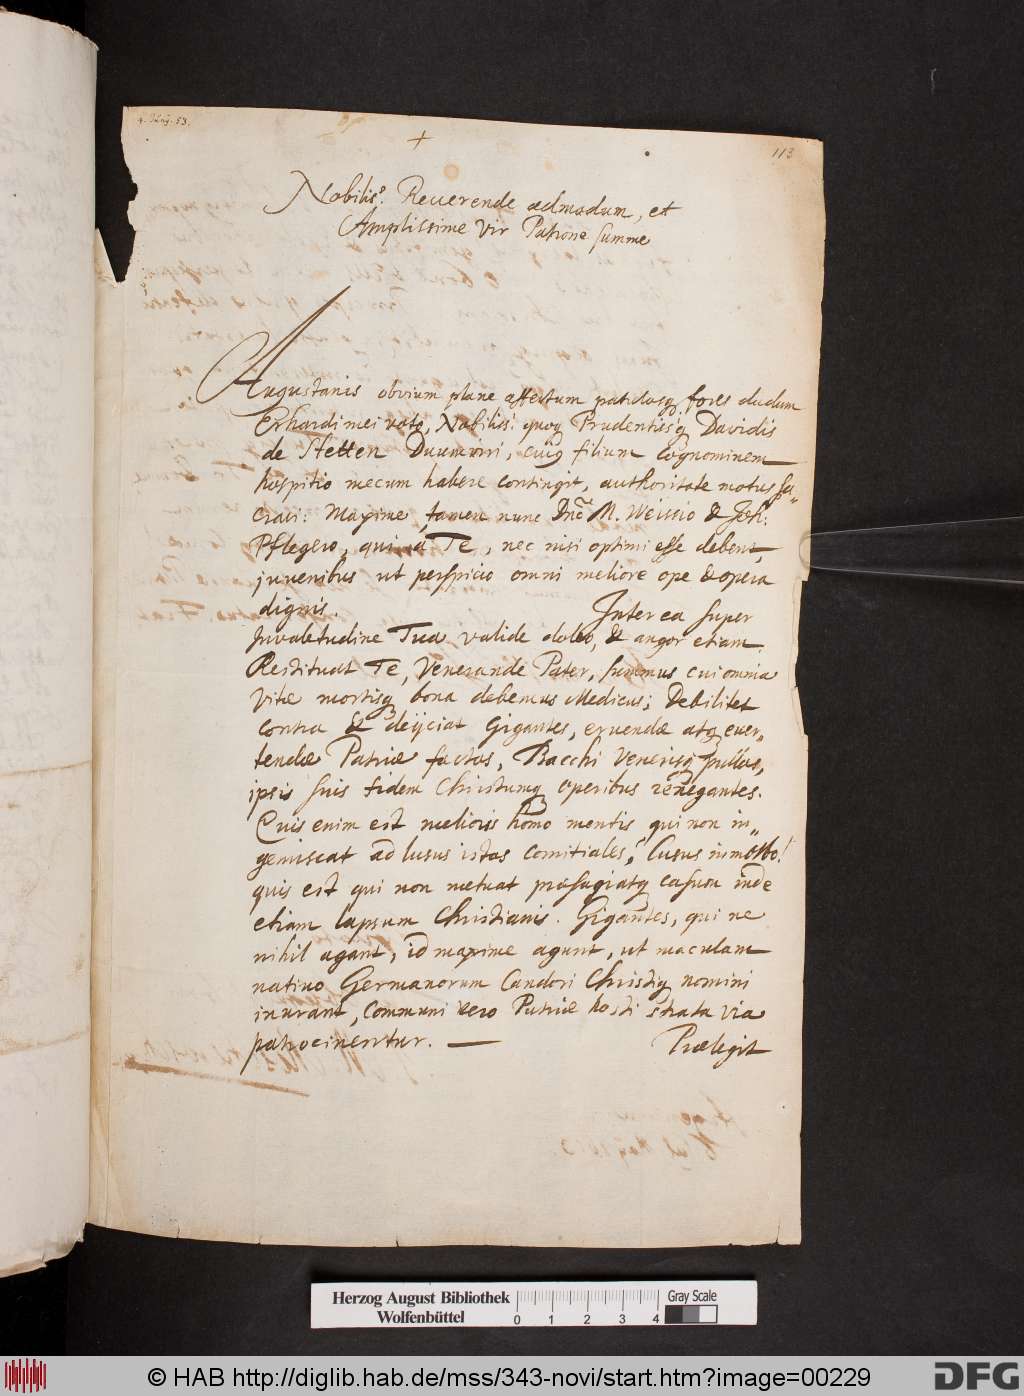 4. Junij. 53.
113
Nobiliss. Reuerende admodum, et
Amplissime Vir Patrone summe
Augustanis obvium plane affectum patulasq fores dudum
Erhardi mei voto, Nobiliss. quoq Prudentissq Davidis
de Stetten Duumviri, cuiq filium cognominem
hospitio mecum habere contingit, authoritate motus fe„
ceravi: Maxime tamen nunc Dnē M. Weissio & Joh:
Pflegero, qui a Te, nec nisi optimi esse debent,
juvenibus ut perspicio omni meliore ope & opera
dignis. Interea super
Invaletudine Tua valide doleo, & angor etiam.
Restituat Te, Venerande Pater, summus cui omnia
Vitæ mortisq bona debemus Medicus; Debilitet
contra & deijciat Gigantes, eruendæ atq ever„
tendæ Patriæ factos, Bacchi Venerisq pullos,
ipsis suis fidem Christumq operibus renegantes.
Quis enim est melioris homo mentis, qui non in„
gemiscat ad lusus istos comitiales, Lusus in morbo!
quis est qui non metuat præsagiatq casum inde
etiam lapsum Christianis. Gigantes, qui ne
nihil agant, id maxime agunt, ut maculam
nativo Germanorum Candori Christiq nomini
inurant, Communi vero Patriæ hosti strata via
patrocinentur. — Prælegit
Herzog August Bibliothek
Wolfenbüttel
0 1 2 3 4
Gray Scale
© HAB http://diglib.hab.de/mss/343-novi/start.htm?image=00229
DFG